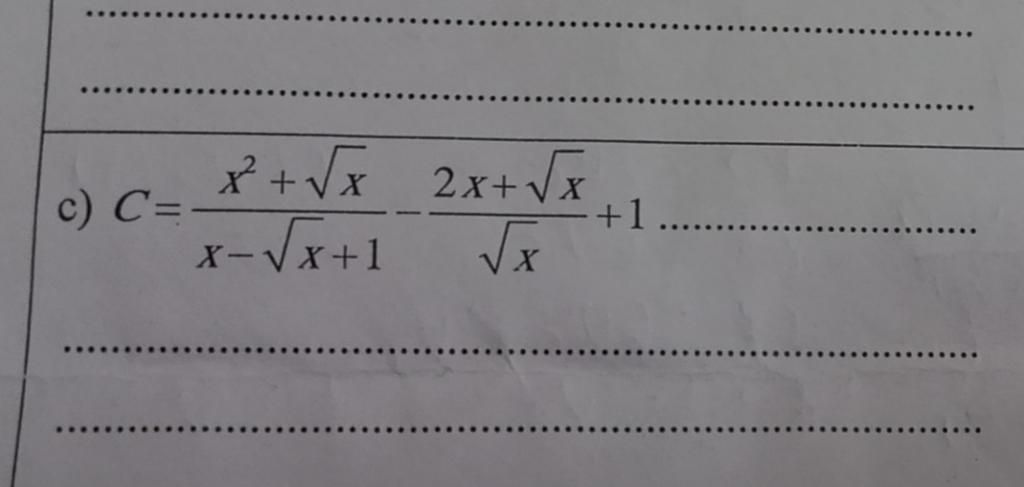 c) C = \frac{x^2+\sqrt{x}}{x-\sqrt{x}+1} - \frac{2x+\sqrt{x}}{\sqrt{x}} + 1 ..............................